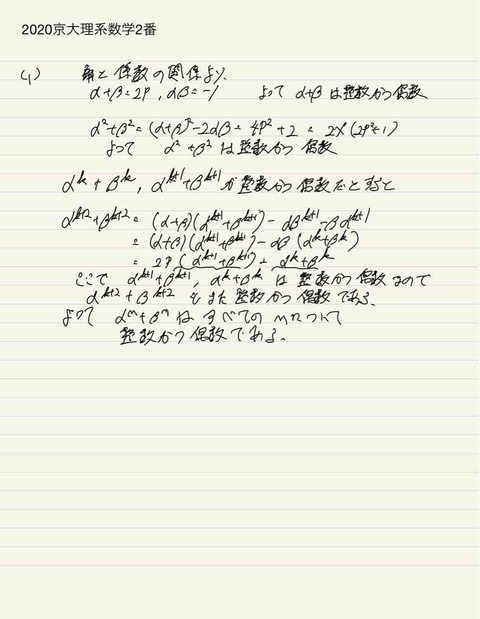 2020京大理系数学2番
(1) 解と係数の関係より、
α+β=2P, αβ=-1 よって α+βは整数かつ偶数
α²+β²=(α+β)²-2αβ=4P²+2=2×(2P²+1)
よって α²+β²は整数かつ偶数
α^k+β^k, α^{k+1}+β^{k+1}が整数かつ偶数だとすると
α^{k+2}+β^{k+2}=(α+β)(α^{k+1}+β^{k+1})-αβ^{k+1}-βα^{k+1}
=(α+β)(α^{k+1}+β^{k+1})-αβ(α^k+β^k)
=2P(α^{k+1}+β^{k+1})+α^k+β^k
ここで α^{k+1}+β^{k+1}, α^k+β^kは整数かつ偶数なので
α^{k+2}+β^{k+2}もまた整数かつ偶数である。
よって α^n+β^nはすべてのnについて
整数かつ偶数である。